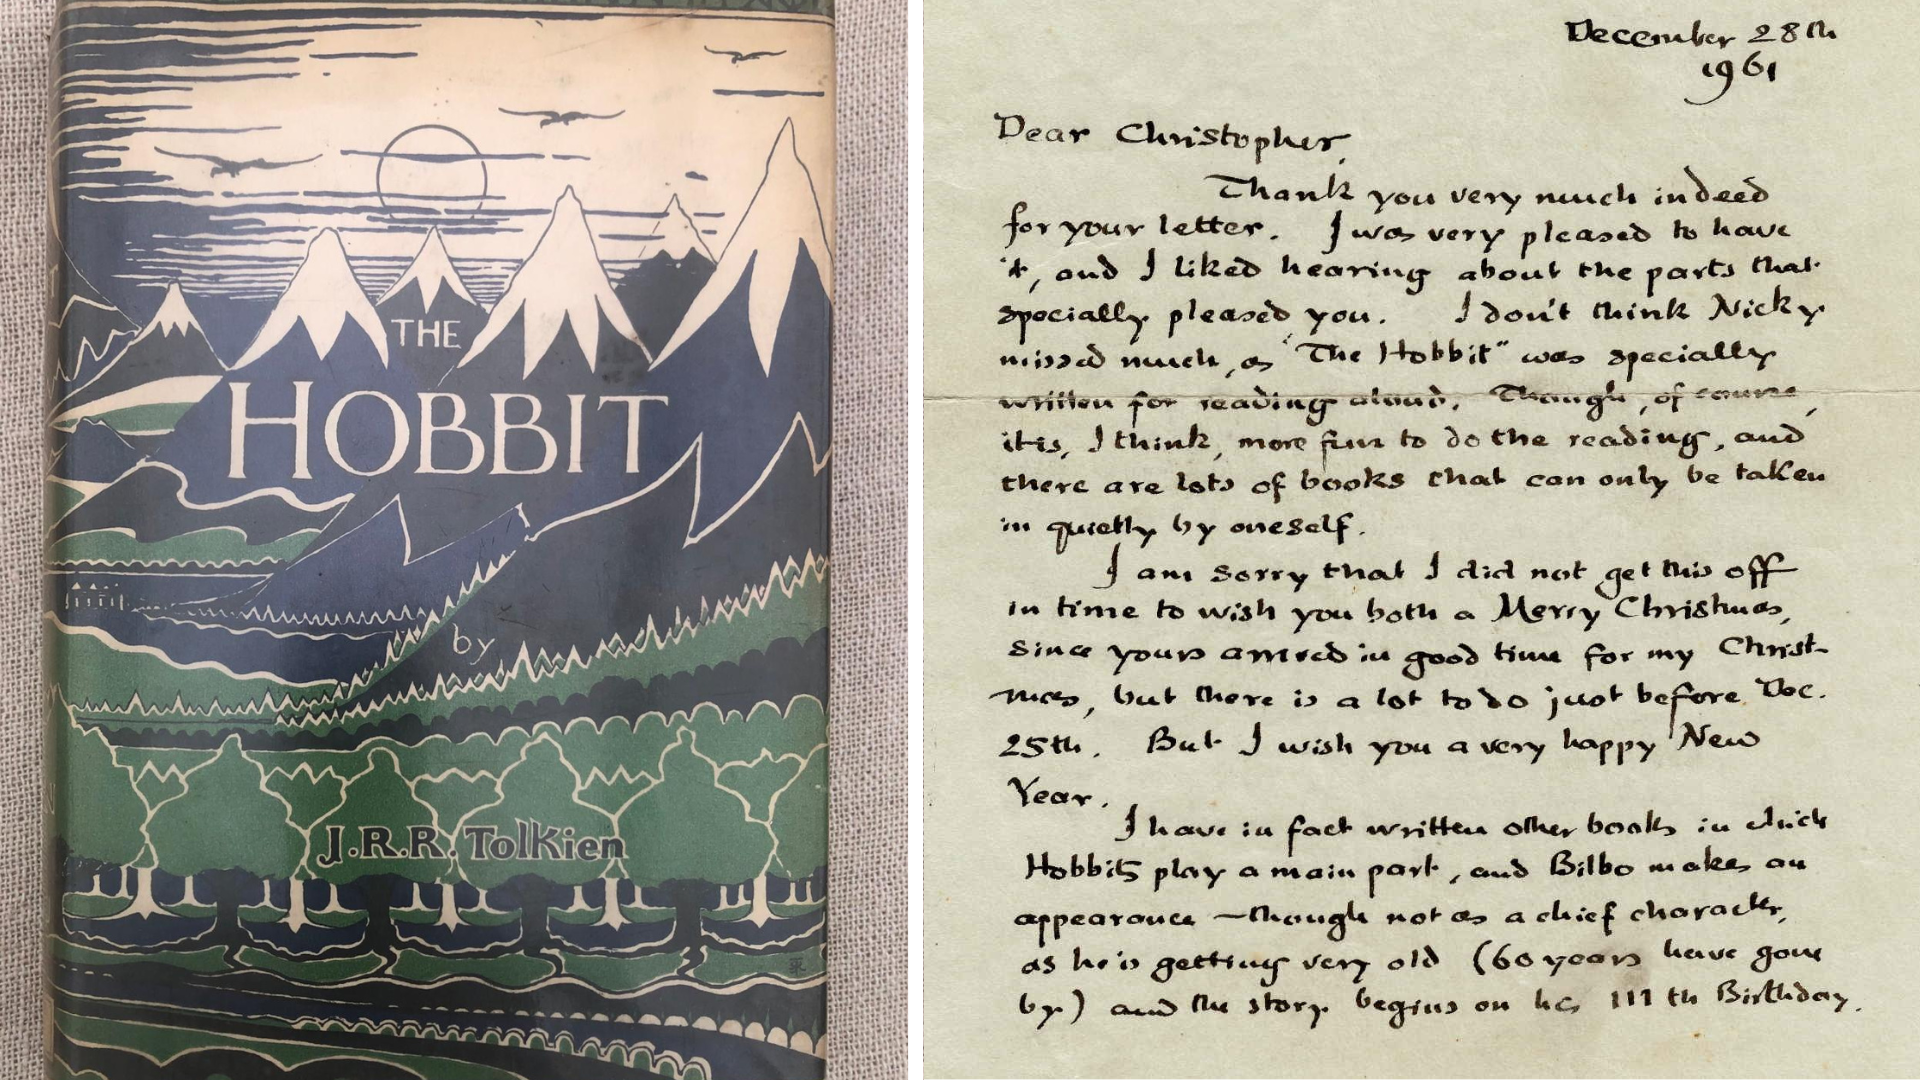 THE
HOBBIT
by
J.R.R. Tolkien
December 28th
1961
Dear Christopher,
Thank you very much indeed
for your letter. I was very pleased to have
it, and I liked hearing about the parts that
specially pleased you. I don't think Nicky
missed much, as "The Hobbit" was specially
written for reading aloud. Though, of course,
it is, I think, more fun to do the reading, and
there are lots of books that can only be taken
in quietly by oneself.
I am sorry that I did not get this off
in time to wish you both a Merry Christmas,
since yours arrived in good time for my Christ-
mas, but there is a lot to do just before Dec.
25th. But I wish you a very happy New
Year.
I have in fact written other books in which
Hobbits play a main part, and Bilbo makes an
appearance – though not as a chief character,
as he's getting very old (60 years have gone
by) and the story begins on his 111th Birthday.